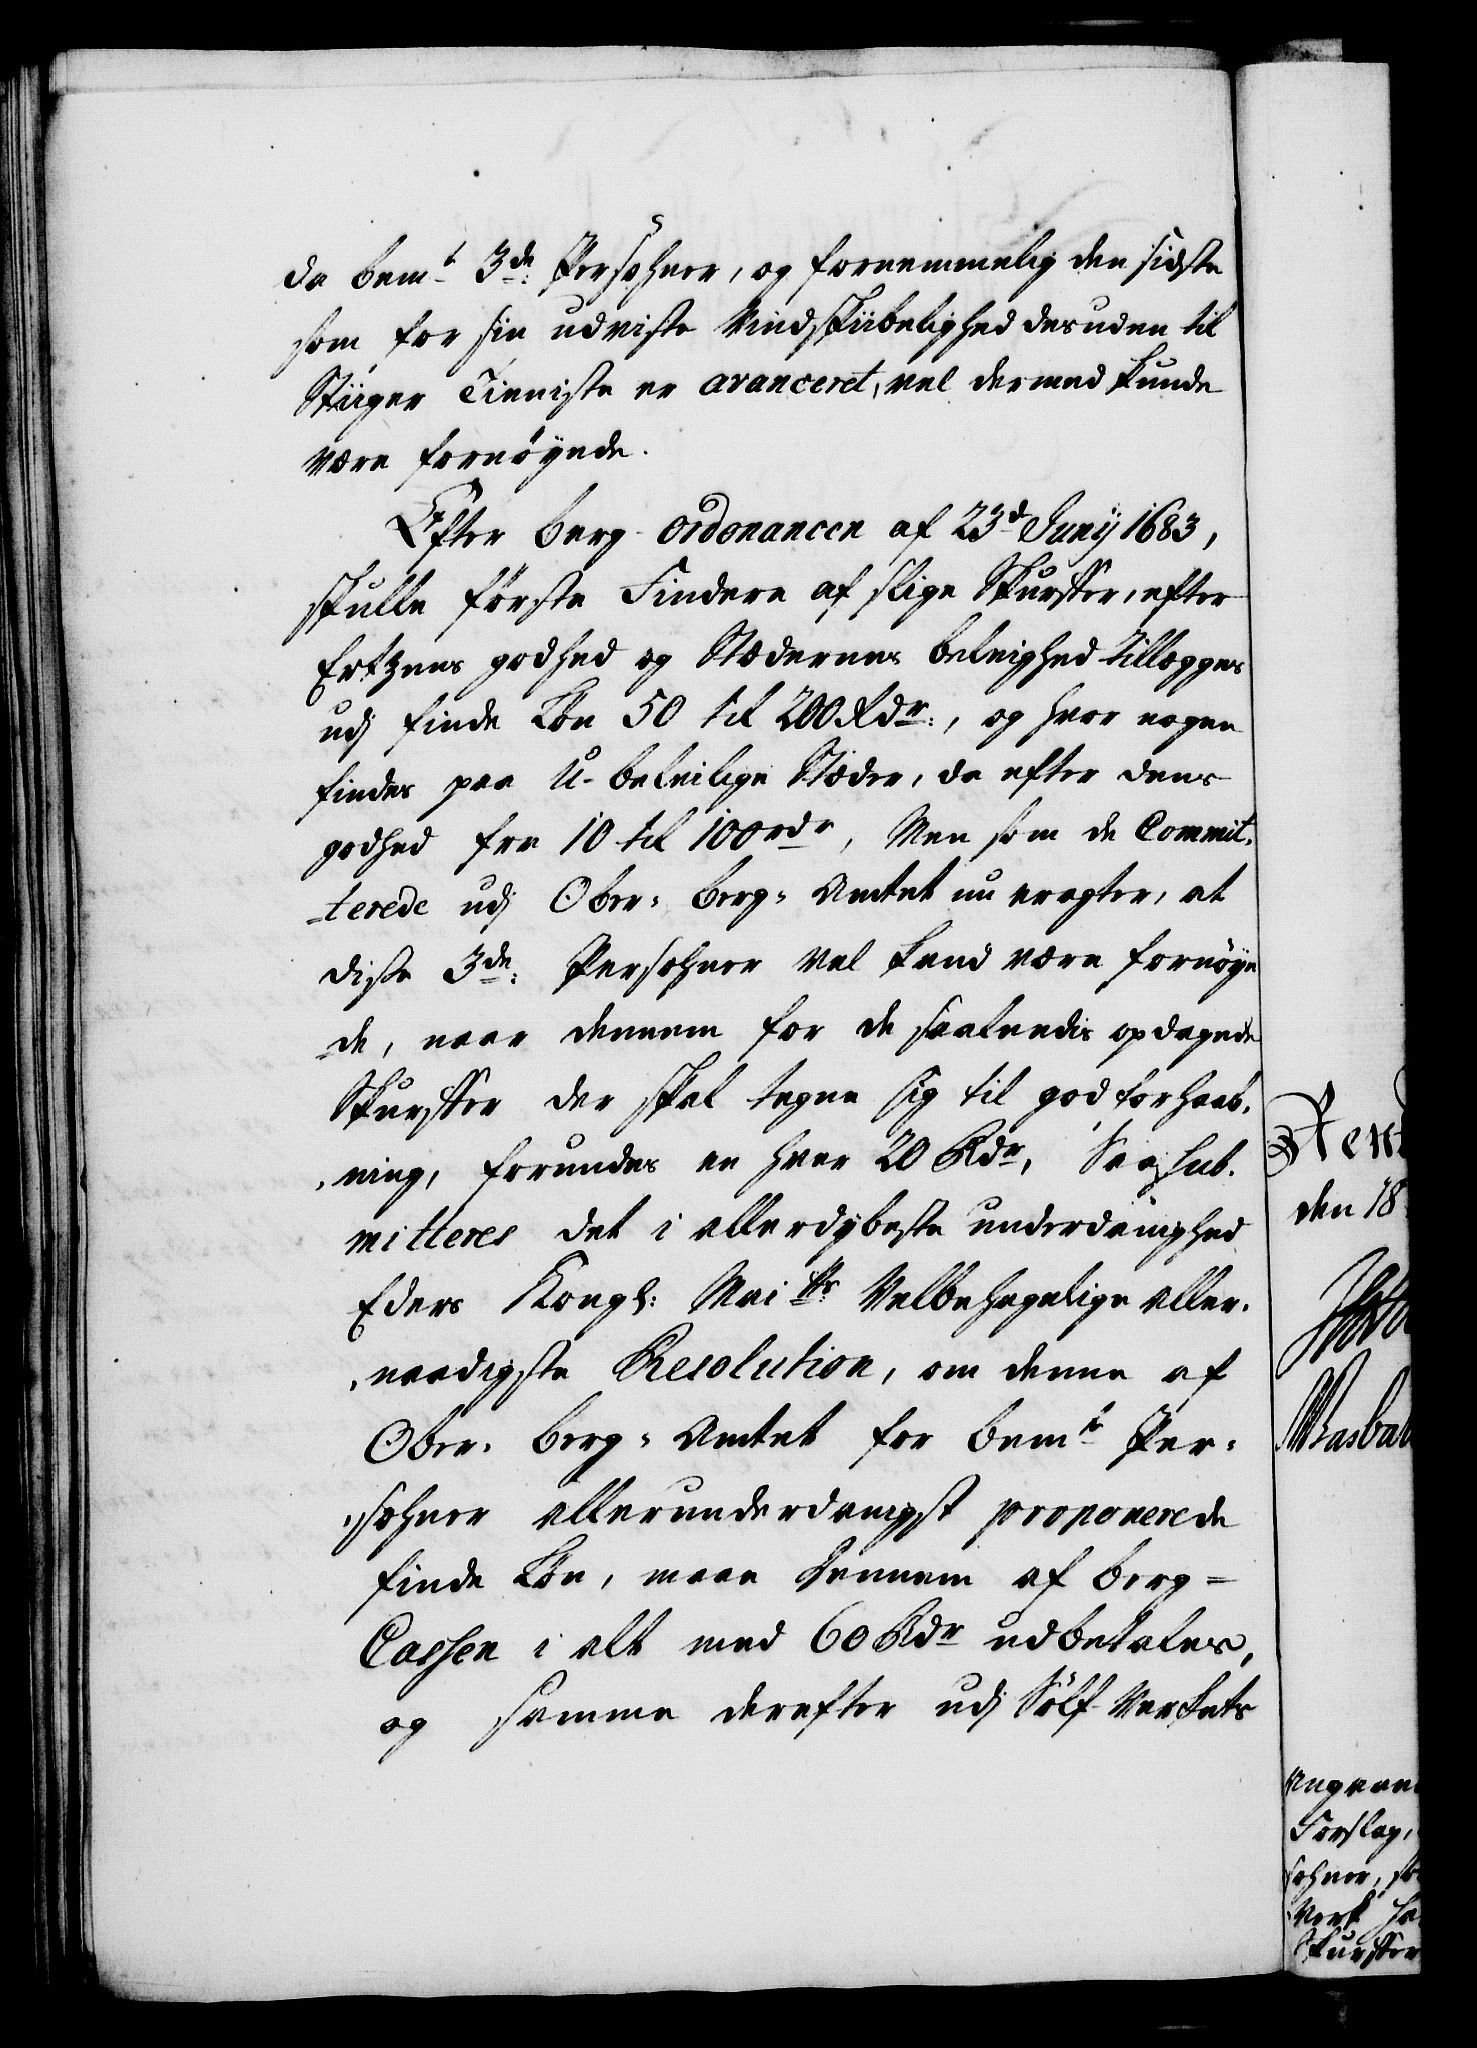 da bemt 3de: Persohner, og fornemmelig den sidste
som for sin udviste Vindskibelighed desuden til
Stiiger Tieniste er avanceret, vel dermed kunde
være fornöyede.
Efter berg-ordonancen af 23de Junij 1683,
skulle förste Findere af slige Skurffer, efter
Ertzens godhed og Stædernes beleighed tillegges
udj finde Lön 50 til 200 Rdr:, og hvor nogen
findes paa U-beleilige Stæder, da efter dens
godhed fra 10 til 100 rdr, Men som de Commit-
terede udj Ober-berg-Amtet nu eragter, at
disse 3de: Persohner vel kand være fornöye
de, naar dennem for de saaledis opdagede
Skurffer der skal tegne sig til god forhaab-
ning, forundes en hver 20 Rdr, Saa sub-
mitteres det i allerdybeste underdanighed
Eders Kongl: Maits: Velbehagelige aller-
naadigste Resolution, om denne af
Ober-berg-Amtet for bemte Per-
sohner allerunderdanigst proponerede
finde Lön, maae dennem af berg-
Cassen i alt med 60 Rdr udbetales,
og samme derefter udj Sölf-Verkets
Rent
den 18
Angaaen
Forslag,
sohner, so
Verk ha
Skurffer